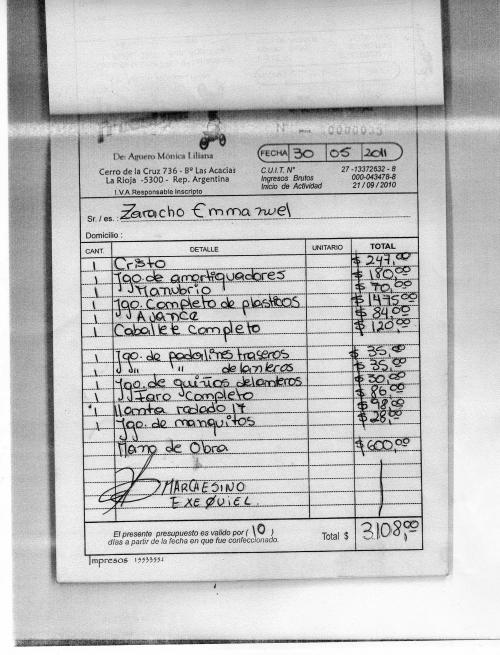 Nº 0000033
De: Aguero Mónica Liliana
FECHA 30 05 2011
Cerro de la Cruz 736 - Bº Las Acacias
La Rioja -5300 - Rep. Argentina
I.V.A Responsable Inscripto
C.U.I.T. Nº 27 -13372632 - 8
Ingresos Brutos 000-043478-8
Inicio de Actividad 21 / 09 / 2010
Sr. / es.: Zaracho Emmanuel
Domicilio :
CANT. DETALLE UNITARIO TOTAL
1 Cristo $ 247,00
1 Jgo. de amortiguadores $ 180,00
1 Manubrio $ 70,00
1 Jgo. Completo de plasticos $ 1475,00
1 Avance $ 84,00
1 Caballete Completo $ 120,00
1 Jgo. de pedalines traseros $ 35,00
1 Jg " " delanteros $ 35,00
1 Jgo. de guiños delanteros $ 30,00
1 Faro Completo $ 86,00
1 llanta rodado 17 $ 98,00
1 Jgo. de manguitos $ 28,00
Mano de Obra $ 600,00
MARCHESINO
EXEQUIEL.
El presente presupuesto es valido por ( 10 )
días a partir de la fecha en que fue confeccionado.
Total $ 3.108,00
Impresos